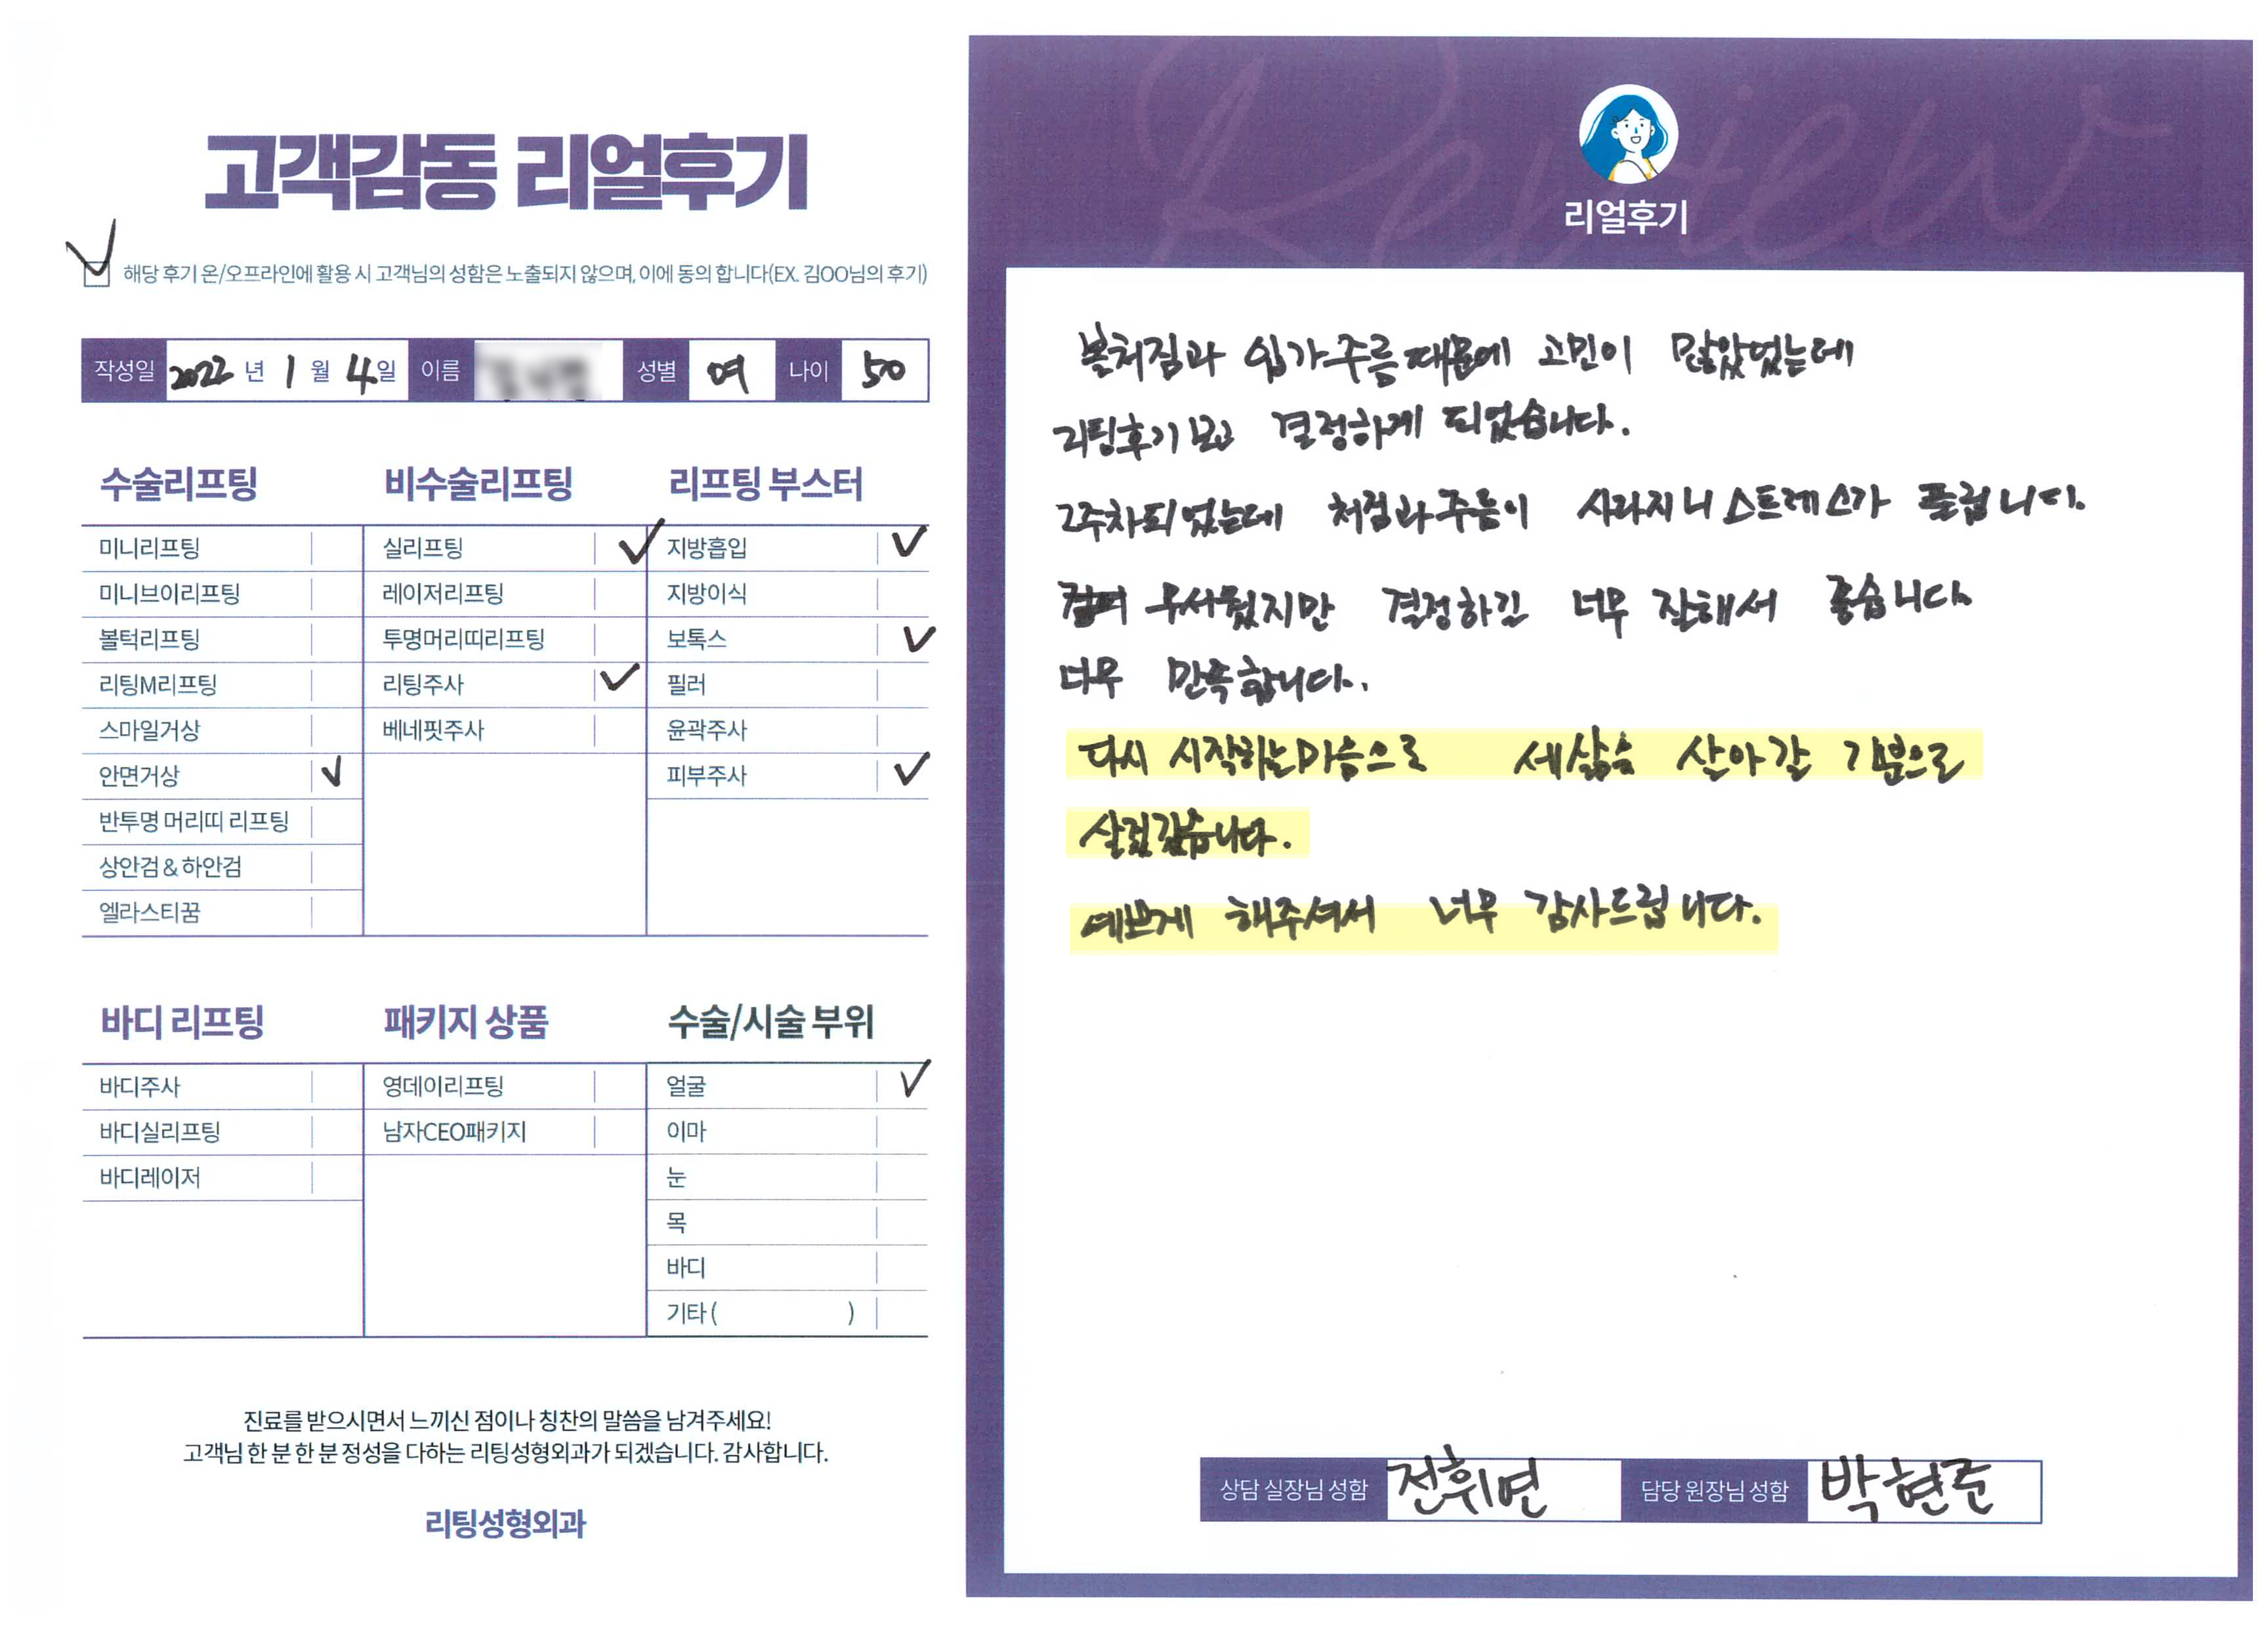 고객감동 리얼후기
해당 후기 온/오프라인에 활용 시 고객님의 성함은 노출되지 않으며, 이에 동의 합니다(EX. 김OO님의 후기)
작성일 2022 년 1 월 4 일 이름 성별 여 나이 50
수술리프팅 비수술리프팅 리프팅 부스터
미니리프팅 실리프팅 지방흡입
미니브이리프팅 레이저리프팅 지방이식
볼턱리프팅 투명머리띠리프팅 보톡스
리팅M리프팅 리팅주사 필러
스마일거상 베네핏주사 윤곽주사
안면거상 피부주사
반투명 머리띠 리프팅
상안검 & 하안검
엘라스티꿈
바디 리프팅 패키지 상품 수술/시술 부위
바디주사 영데이리프팅 얼굴
바디실리프팅 남자CEO패키지 이마
바디레이저 눈
목
바디
기타 ( )
진료를 받으시면서 느끼신 점이나 칭찬의 말씀을 남겨주세요!
고객님 한 분 한 분 정성을 다하는 리팅성형외과가 되겠습니다. 감사합니다.
리팅성형외과
Review
리얼후기
볼처짐과 입가주름때문에 고민이 많았었는데
리팅후기보고 결정하게 되었습니다.
2주차되었는데 처짐과주름이 사라지니 스트레스가 풀립니다.
무서웠지만 결정하길 너무 잘해서 좋습니다
너무 만족합니다.
다시 시작하는마음으로 세삶을 살아갈 기분으로
살것같습니다.
예쁘게 해주셔서 너무 감사드립니다.
상담 실장님 성함 전휘연 담당 원장님 성함 박현준